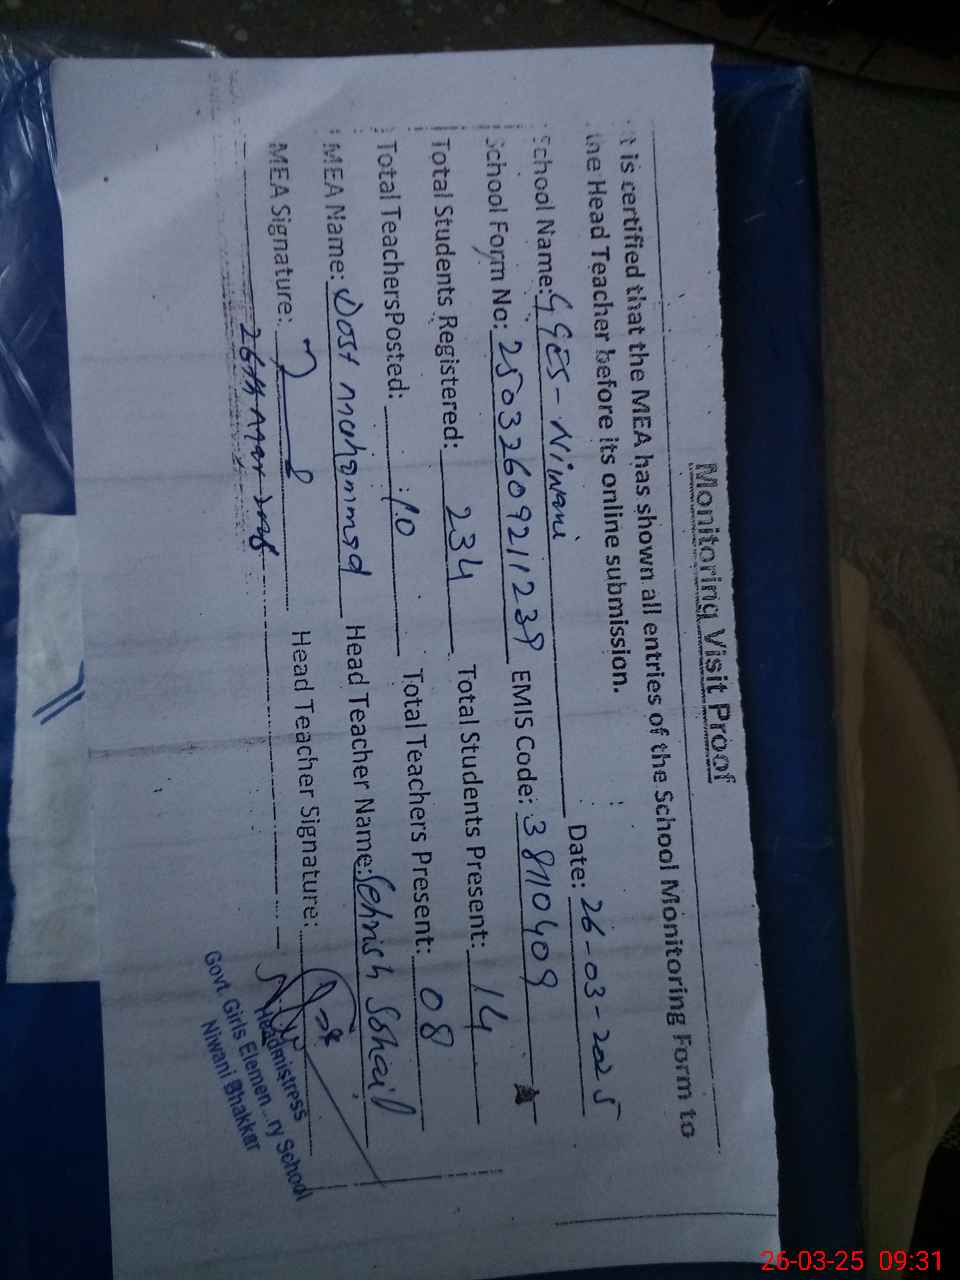 Monitoring Visit Proof
It is certified that the MEA has shown all entries of the School Monitoring Form to
the Head Teacher before its online submission.
Date: 26-03-2025
School Name: GGES-Niwani
School Form No: 25032609211239 EMIS Code: 38110409
Total Students Registered: 234 Total Students Present: 14
Total TeachersPosted: 10 Total Teachers Present: 08
MEA Name: Dost Muhammad Head Teacher Name: Sehrish Sohail
MEA Signature: Head Teacher Signature:
26th Mar 2025
Headmistress
Govt. Girls Elemen...ry School
Niwani Bhakkar
26-03-25 09:31